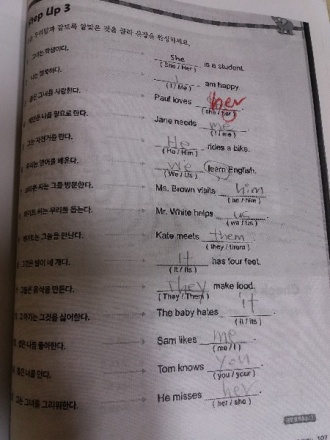 Step Up 3
우리말에 맞도록 알맞은 것을 골라 문장을 완성하세요.
그녀는 학생이다. She is a student.
(She / Her)
나는 행복하다. I am happy.
(I / Me)
그녀를 사랑한다. Paul loves her
(she / her)
나를 필요로 한다. Jane needs me
(I / me)
자전거를 탄다. He rides a bike.
(He / Him)
영어를 배운다. We learn English.
(We / Us)
그를 방문한다. Ms. Brown visits him
(he / him)
우리를 돕는다. Mr. White helps us.
(we / us)
그들을 만난다. Kate meets them
(they / them)
발이 네 개다. It has four feet.
(It / Its)
음식을 만든다. They make food.
(They / Them)
그것을 싫어한다. The baby hates it.
(it / its)
나를 좋아한다. Sam likes me.
(me / I)
너를 안다. Tom knows you.
(you / your)
그녀를 그리워한다. He misses her.
(her / she)